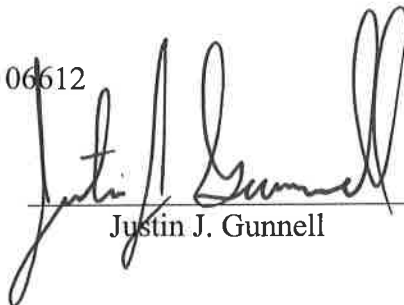 06612
Justin J. Gunnell
Justin J. Gunnell